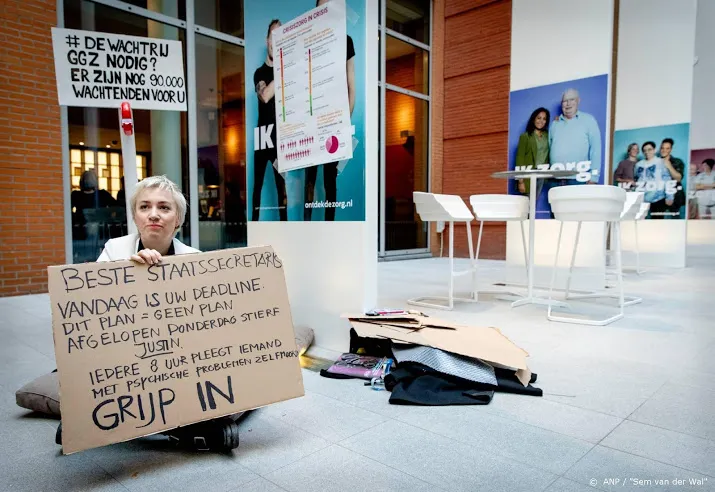 # DE WACHTRIJ
GGZ NODIG?
ER ZIJN NOG 90.000
WACHTENDEN VOOR U
CRISISZORG IN CRISIS
IK
ontdekdezorg.nl
IK zorg.
BESTE STAATSSECRETARIS
VANDAAG IS UW DEADLINE.
DIT PLAN = GEEN PLAN
AFGELOPEN DONDERDAG STIERF
JUSTIN.
IEDERE 8 UUR PLEEGT IEMAND
MET PSYCHISCHE PROBLEMEN ZELFMOORD
GRIJP IN
© ANP / "Sem van der Wal"